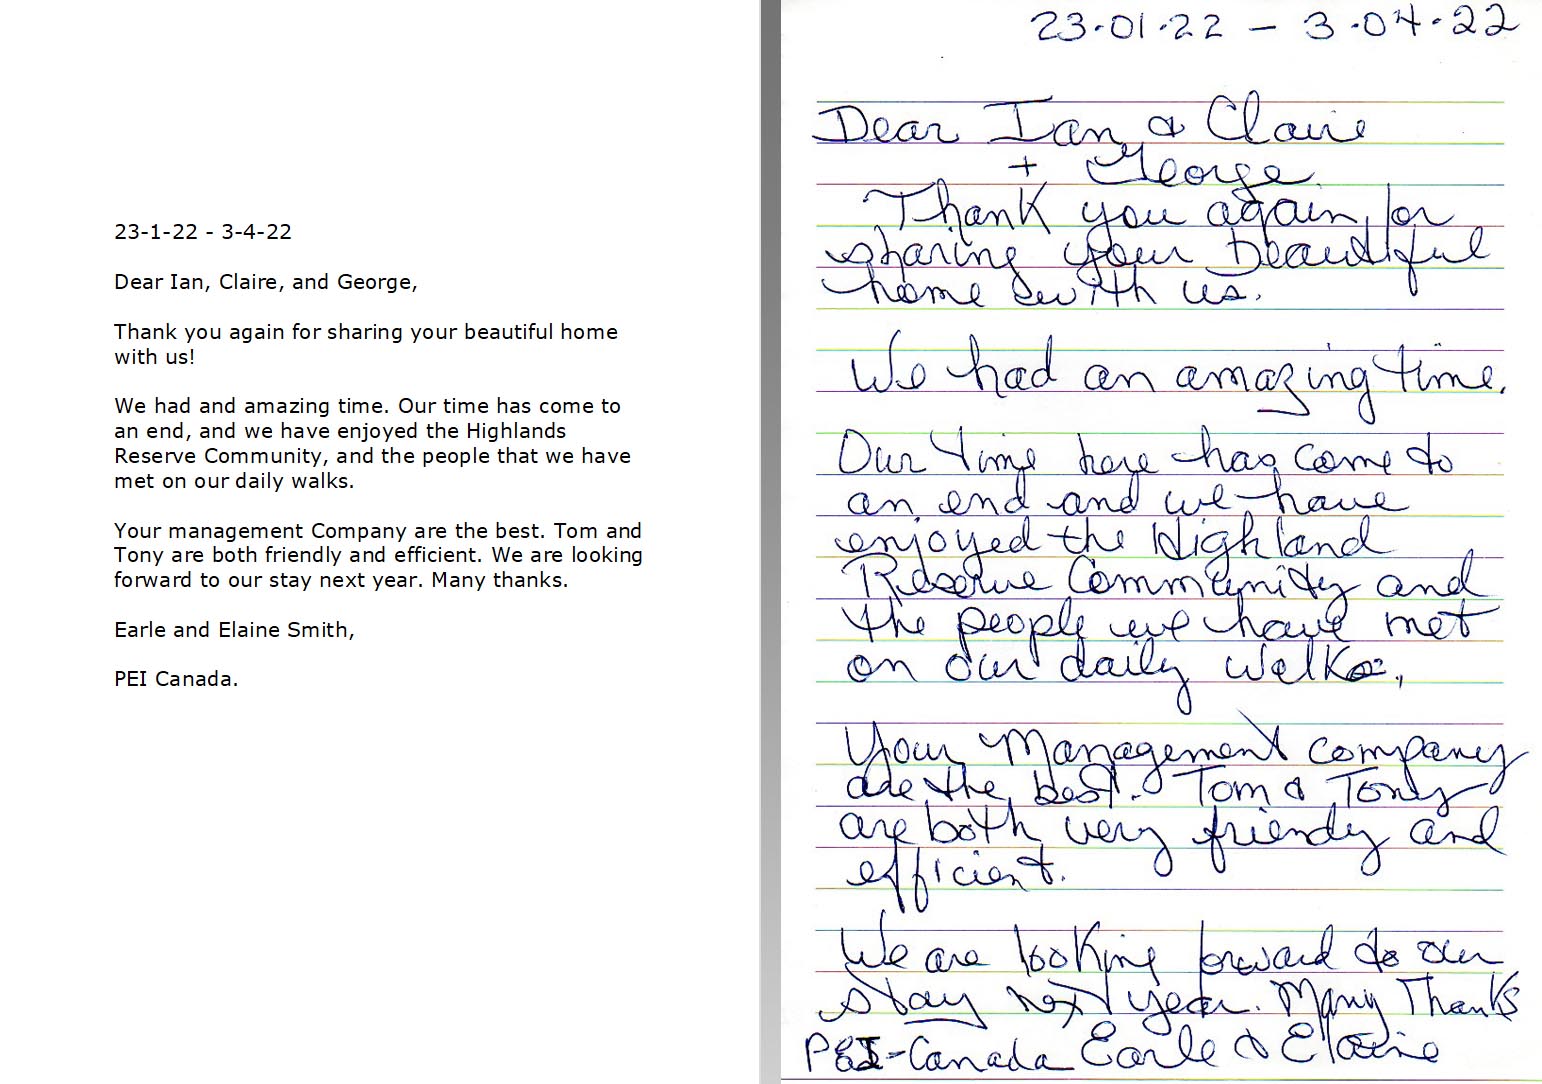 23-1-22 - 3-4-22
Dear Ian, Claire, and George,
Thank you again for sharing your beautiful home
with us!
We had and amazing time. Our time has come to
an end, and we have enjoyed the Highlands
Reserve Community, and the people that we have
met on our daily walks.
Your management Company are the best. Tom and
Tony are both friendly and efficient. We are looking
forward to our stay next year. Many thanks.
Earle and Elaine Smith,
PEI Canada.
23.01.22 - 3.04.22
Dear Ian & Claire
+ George
Thank you again for
sharing your beautiful
home with us.
We had an amazing time.
Our time here has come to
an end and we have
enjoyed the Highland
Reserve Community and
the people we have met
on our daily walks.
Your Management company
are the best. Tom & Tony
are both very friendly and
efficient.
We are looking forward to our
stay next year. Many Thanks
PEI-Canada Earle & Elaine